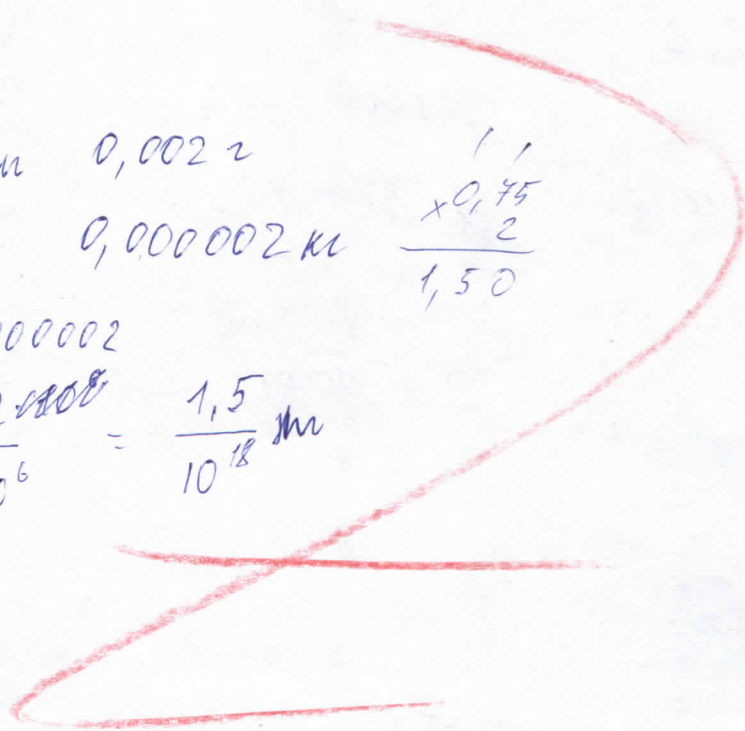 0,002 г
0,000002 кг
× 0,75
2
1,50
00002
6
= 1,5
10¹⁸